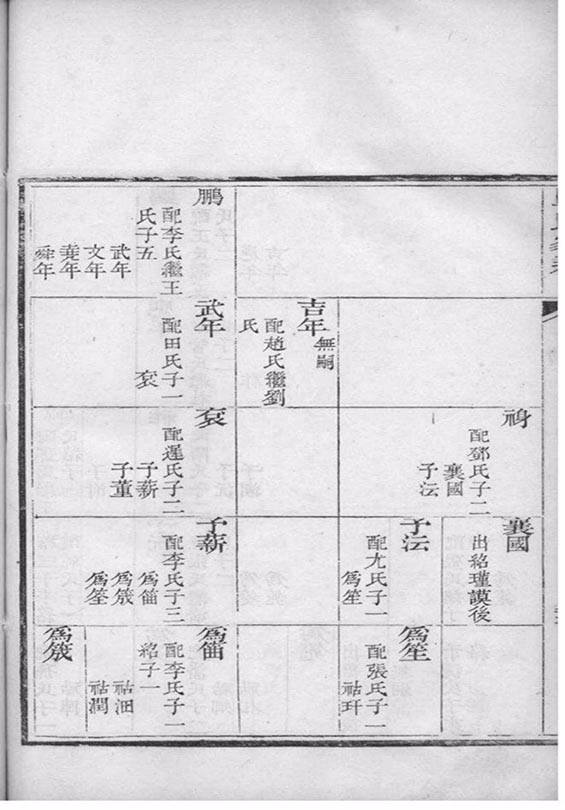 鵬
配李氏繼王
氏子五
武年
文年
堯年
舜年
吉年
無嗣
配趙氏繼劉
氏
武年
配田氏子一
衮
配鄧氏子二
襄國
子沄
衮
配遲氏子二
子薪
子董
襄國
出紹瑾謨後
子沄
配尤氏子一
爲笙
子薪
配李氏子三
爲笛
爲筬
爲笙
爲笙
配張氏子一
祜玕
爲笛
配李氏子一
紹子一
祜沺
祜潤
爲筬